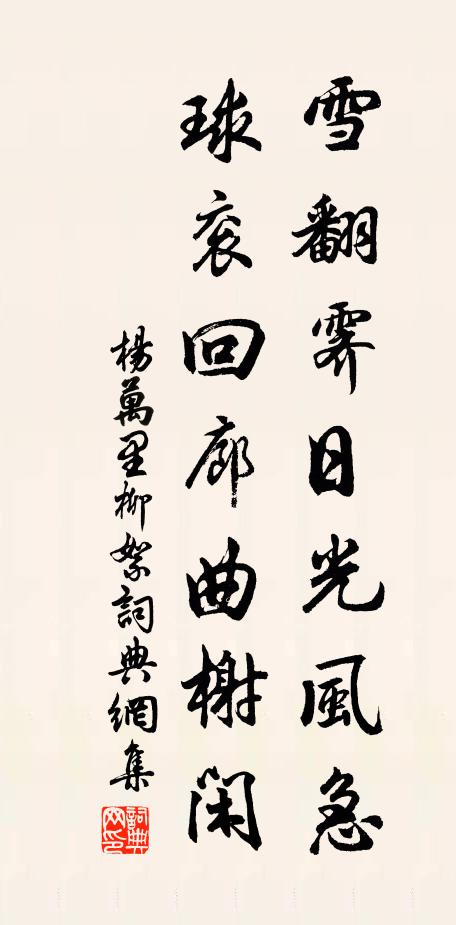 雪翻霽日光風急
球衮回廊曲榭闲
楊萬里柳絮詞典網集
詞典網印